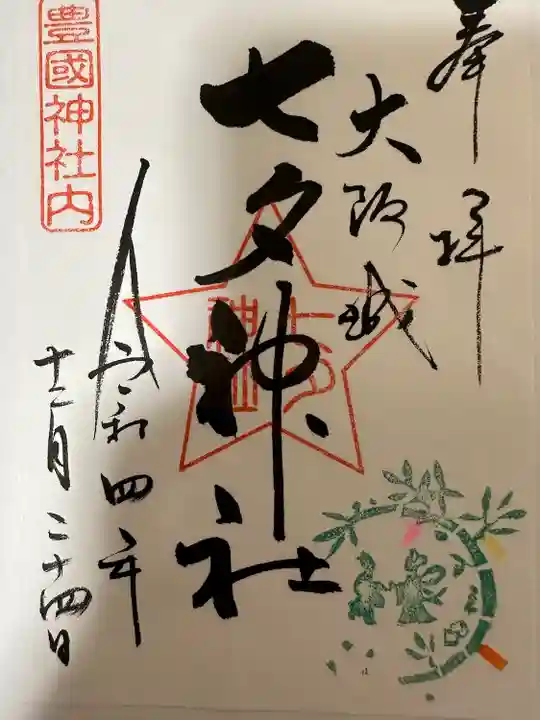 奉拝
大阪城
七夕神社
豊國神社内
令和四年
十二月二十四日